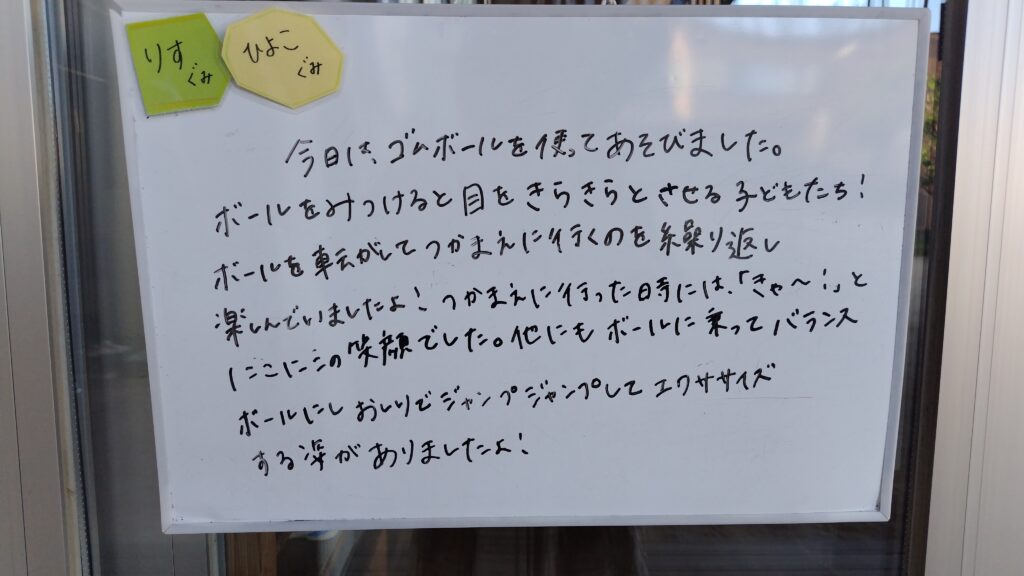 りす
ぐみ
ひよこ
ぐみ
今日は、ゴムボールを使ってあそびました。
ボールをみつけると目をきらきらとさせる子どもたち!
ボールを転がしてつかまえに行くのを繰り返し
楽しんでいましたよ!つかまえに行った時には、「きゃ〜!」と
にこにこの笑顔でした。他にもボールに乗ってバランス
ボールにし おしりでジャンプジャンプして エクササイズ
する姿がありましたよ!